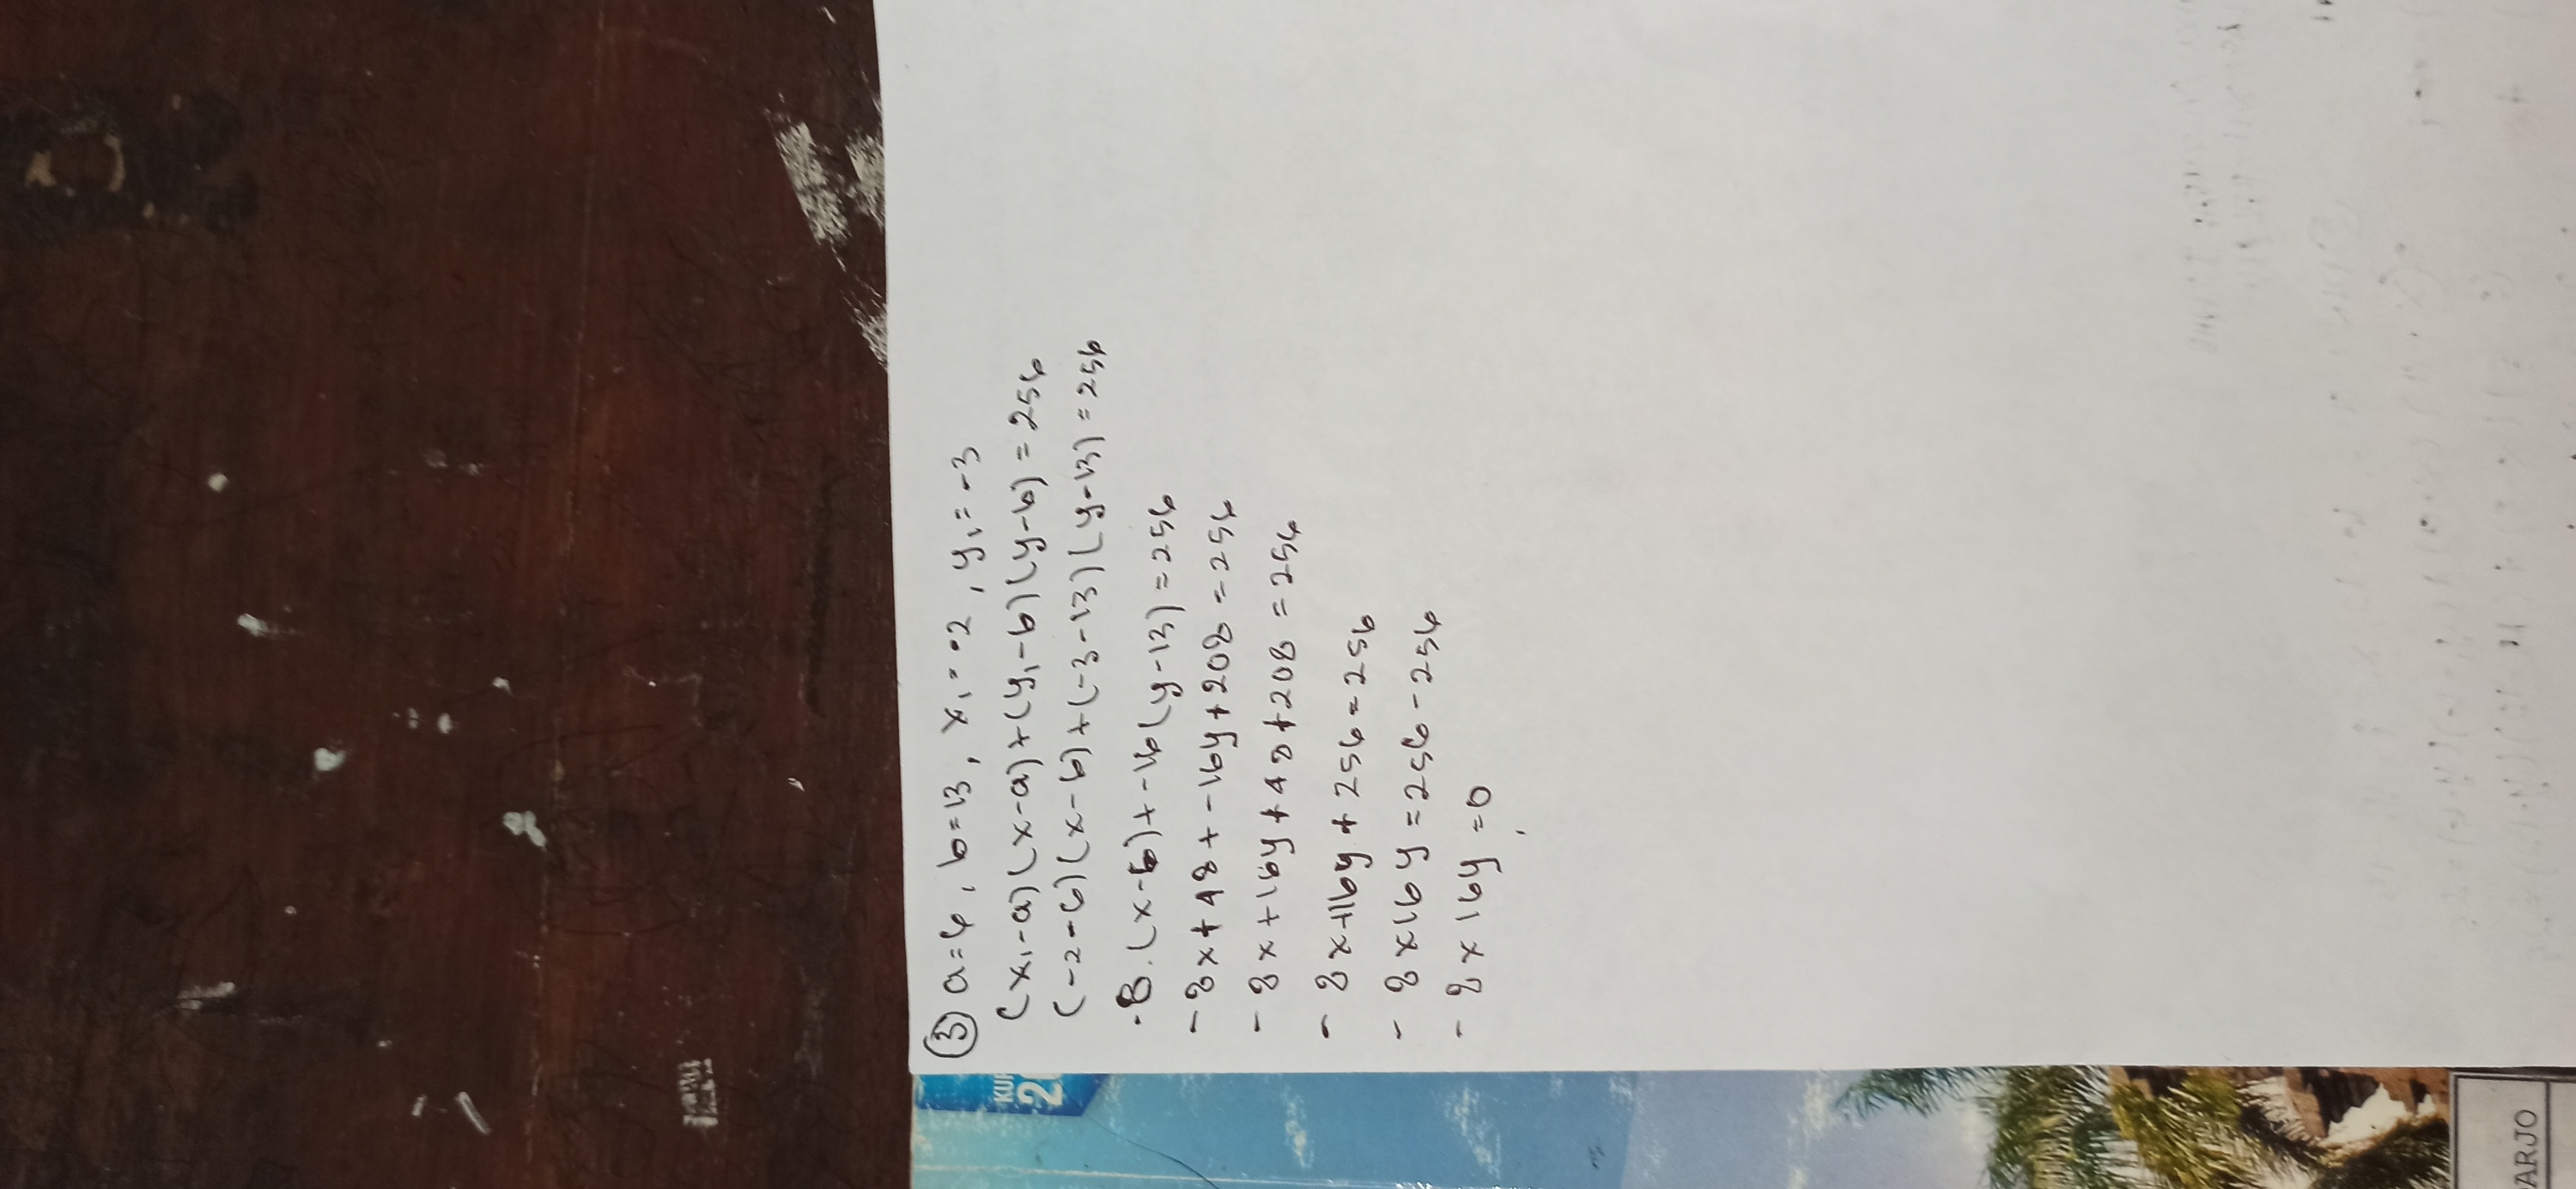 ③ a=6, b=13, x₁=-2, y₁=-3
(x₁-a)(x-a)+(y₁-b)(y-b)=256
(-2-6)(x-6)+(-3-13)(y-13)=256
-8.(x-6)+-16(y-13)=256
-8x+48+-16y+208=256
-8x+16y+48+208=256
-8x+16y+256=256
-8x16y=256-256
-8x16y=0
KUR
20
DARJO